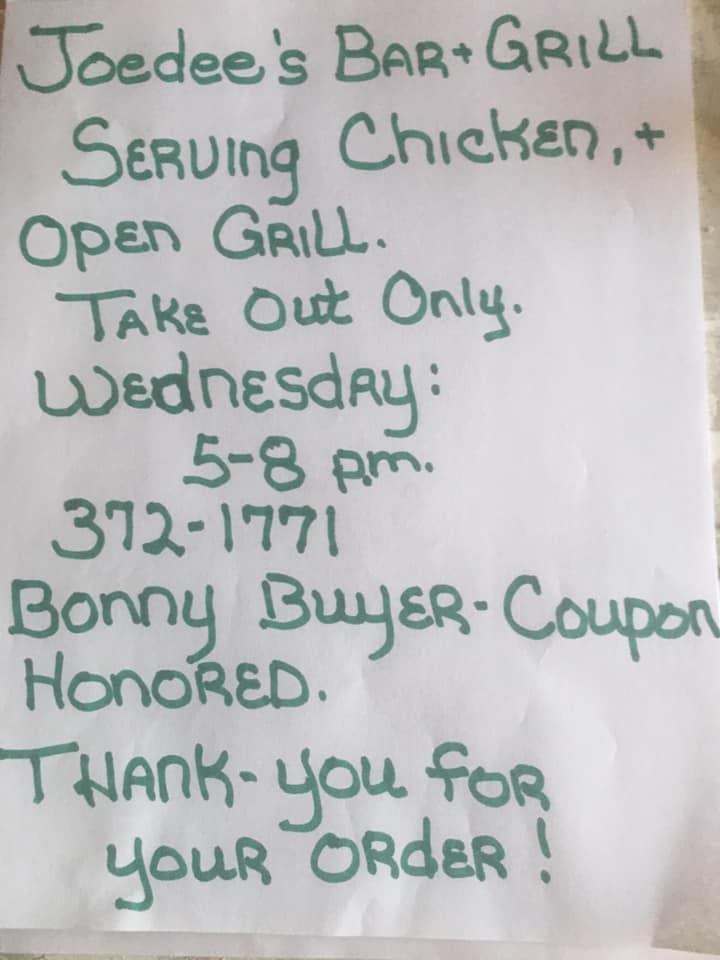 Joedee's BAR + GRILL
SERVING Chicken, +
Open GRILL.
TAKE Out Only.
Wednesday:
5-8 p.m.
372-1771
Bonny Buyer - Coupon
Honored.
THANK-you for
your order!